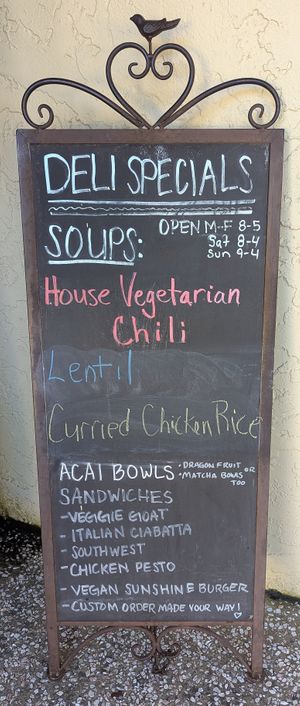 DELI SPECIALS
SOUPS:
OPEN M-F 8-5
Sat 8-4
Sun 9-4
House Vegetarian
Chili
Lentil
Curried Chicken Rice
ACAI BOWLS • DRAGON FRUIT OR
• MATCHA BOWLS
TOO
SANDWICHES
- VEGGIE GOAT
- ITALIAN CIABATTA
- SOUTHWEST
- CHICKEN PESTO
- VEGAN SUNSHINE BURGER
- CUSTOM ORDER MADE YOUR WAY!